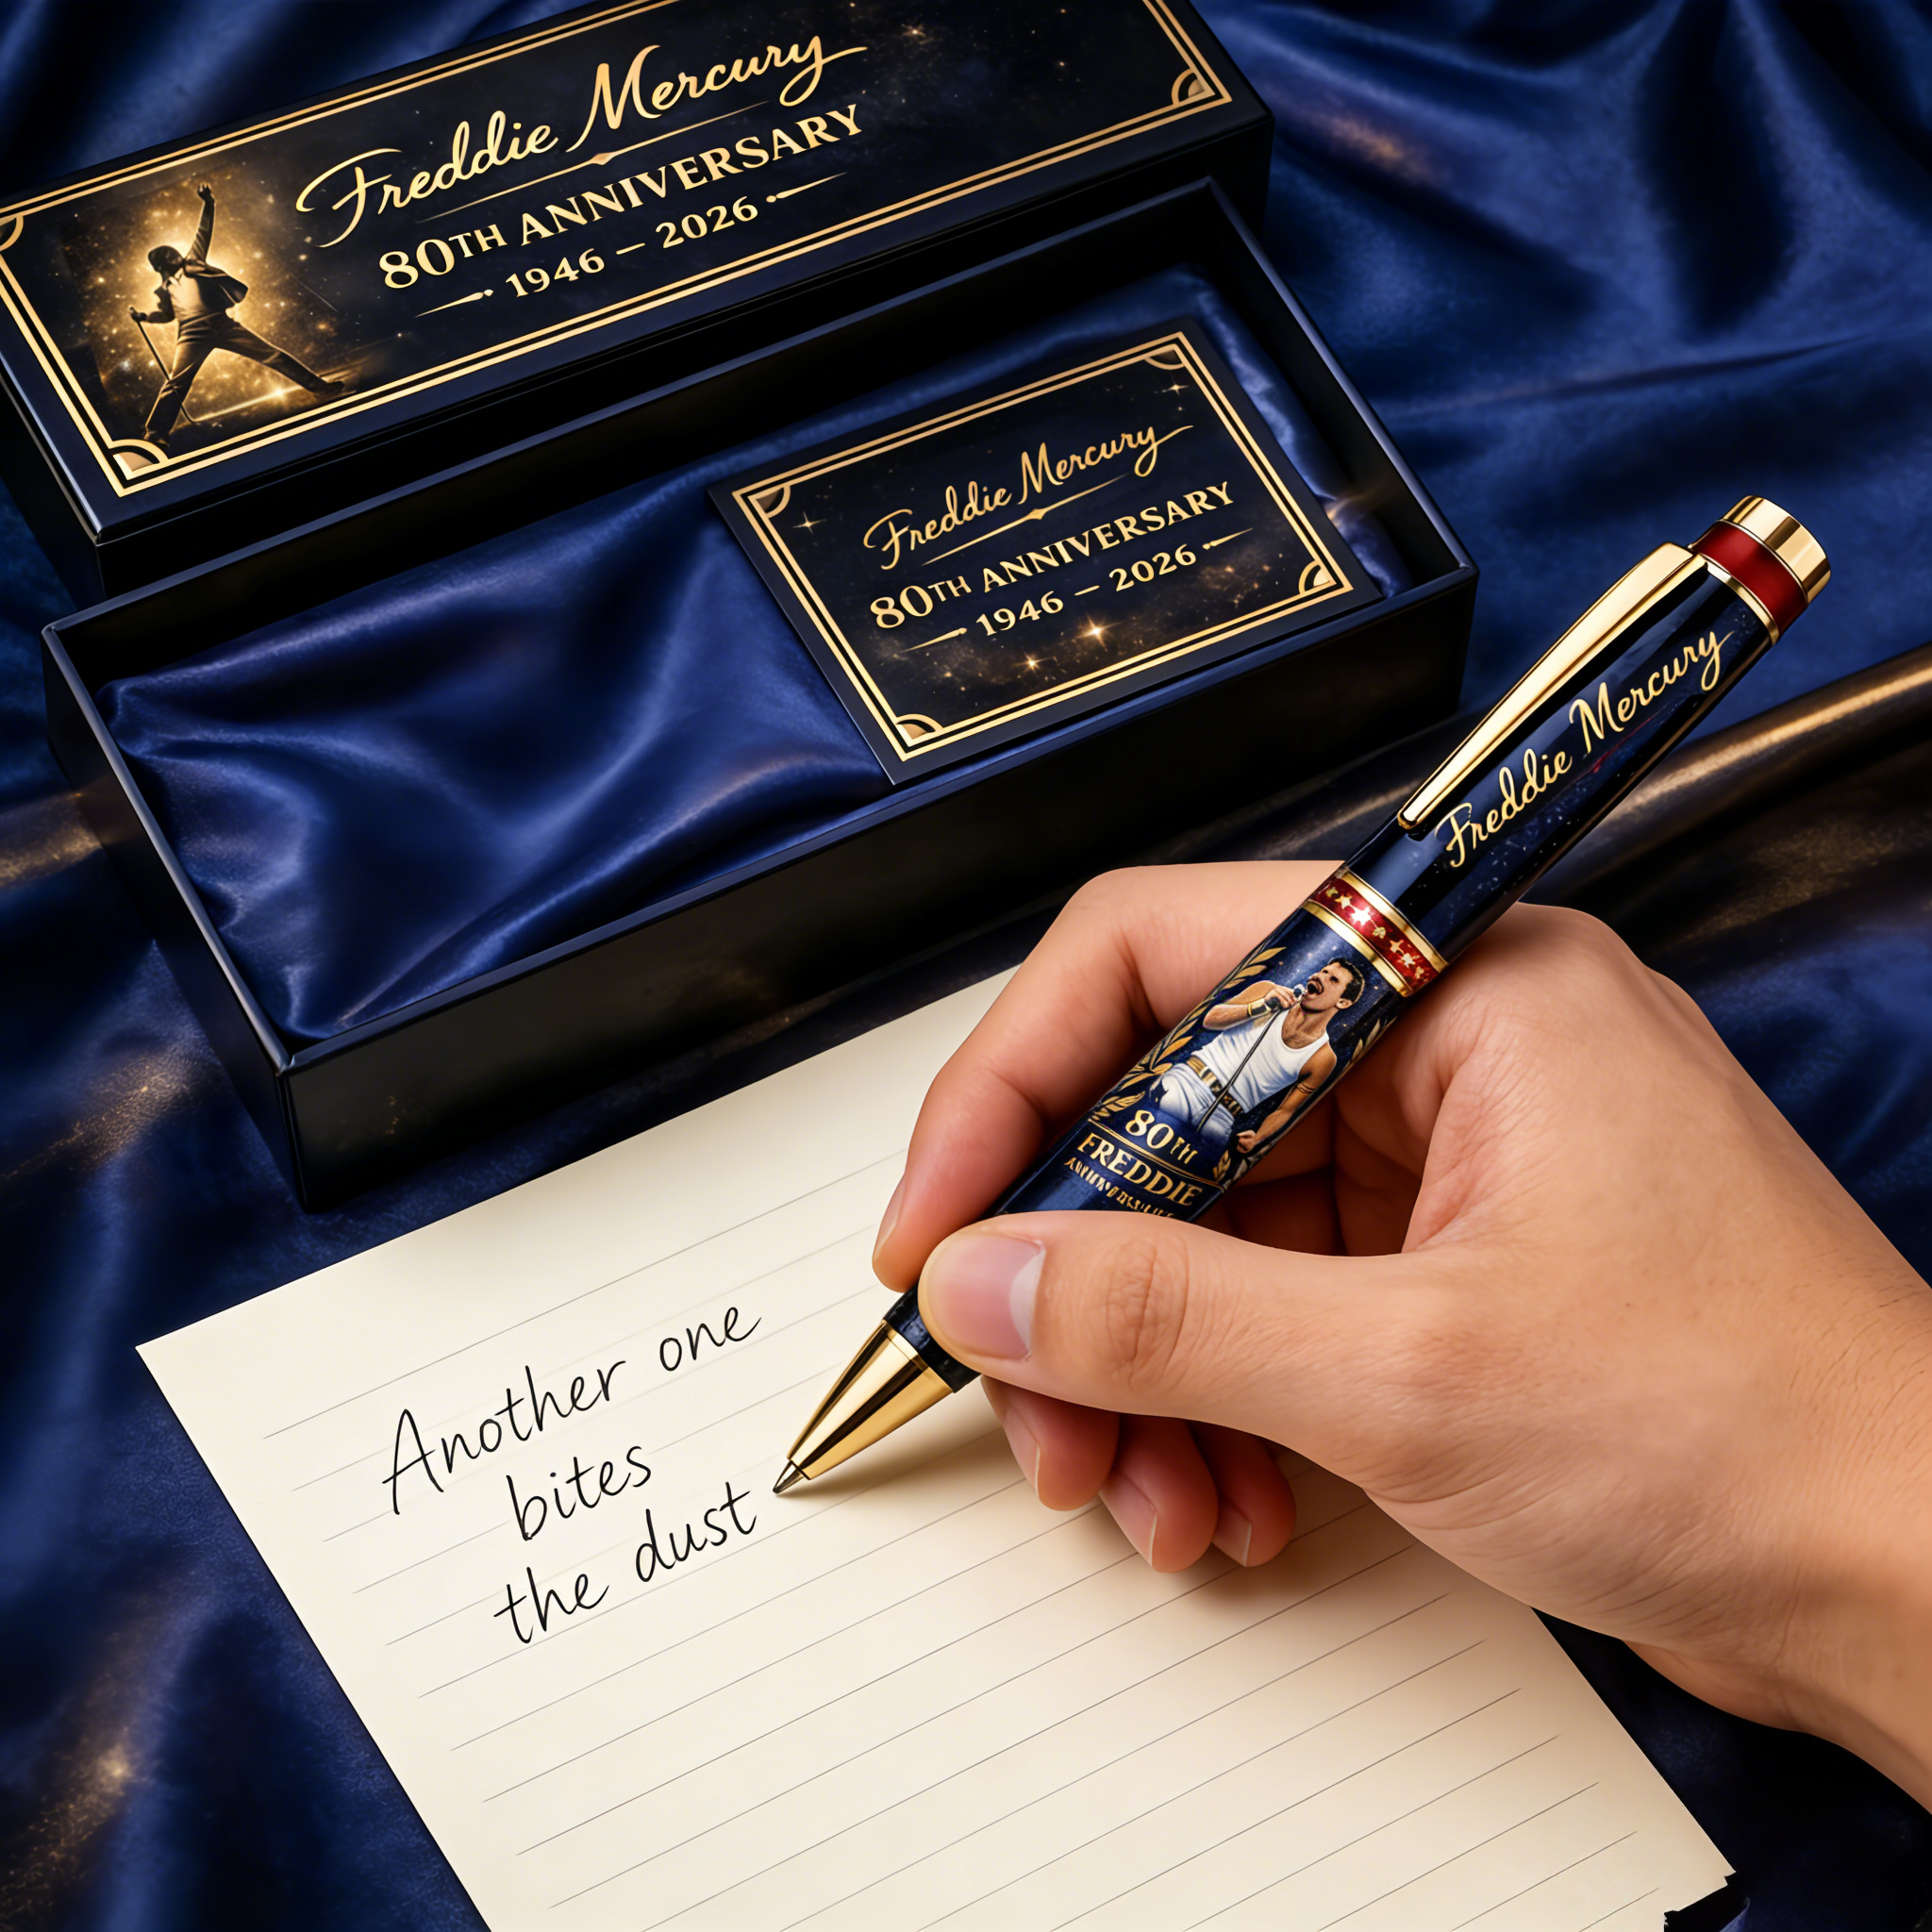 Freddie Mercury
80TH ANNIVERSARY
1946 — 2026
Freddie Mercury
80TH ANNIVERSARY
1946 — 2026
Freddie Mercury
80TH
FREDDIE
Another one
bites
the dust